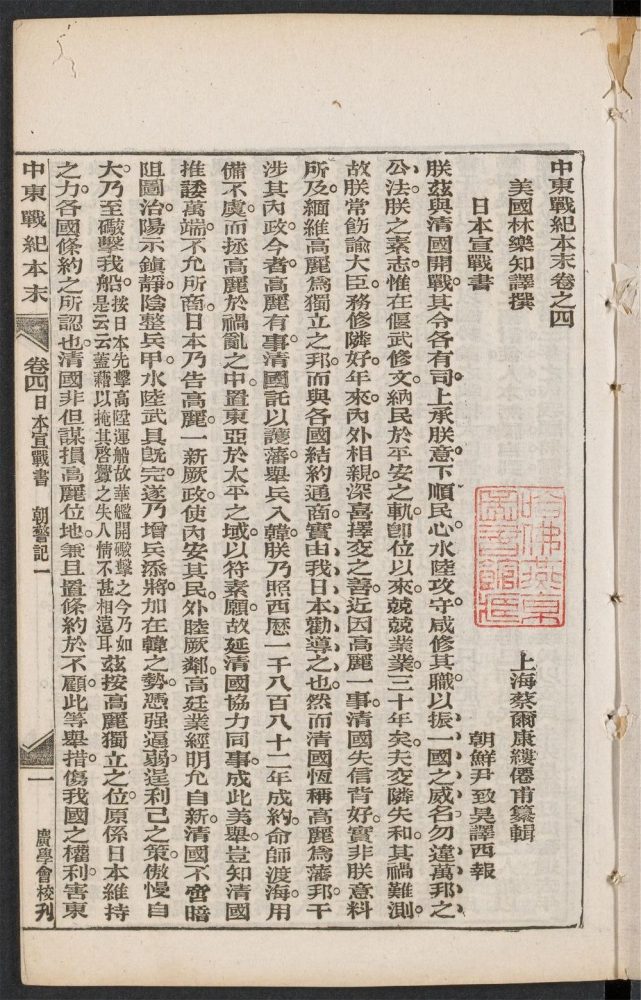 中東戰紀本末卷之四
美國林樂知譯撰
上海蔡爾康縷僊甫纂輯
日本宣戰書
朝鮮尹致昊譯西報
朕茲與清國開戰其令各有司上承朕意下順民心水陸攻守咸修其職以振一國之威名勿違萬邦之
公法朕之素志惟在偃武修文納民於平安之軌卽位以來兢兢業業三十年矣夫交隣失和其禍難測
故朕常飭諭大臣務修隣好年來內外相親深喜擇交之善近因高麗一事清國失信背好實非朕意料
所及緬維高麗爲獨立之邦而與各國結約通商實由我日本勸導之也然而清國恆稱高麗爲藩邦干
涉其內政今者高麗有事清國託以護藩舉兵入韓朕乃照西歷一千八百八十二年成約命師渡海用
備不虞而拯高麗於禍亂之中置東亞於太平之域以符素願故延清國協力同事成此美舉豈知清國
推諉萬端不允所商日本乃告高麗一新厥政使內安其民外睦厥鄰高廷業經明允自新清國不啻暗
阻圖治陽示鎮靜陰整兵甲水陸武具旣完遂乃增兵添將加在韓之勢憑强逼弱逞利己之策傲慢自
大乃至礮擊我船按日本先擊高陞運船故華艦開礮擊之今乃如是云云蓋藉以掩其啓釁之失人情不甚相遠耳茲按高麗獨立之位原係日本維持
之力各國條約之所認也清國非但謀損高麗位地兼且置條約於不顧此等舉措傷我國之權利害東
中東戰紀本末
卷四日本宣戰書 朝警記一
一
廣學會校刊
哈佛燕京圖書館藏